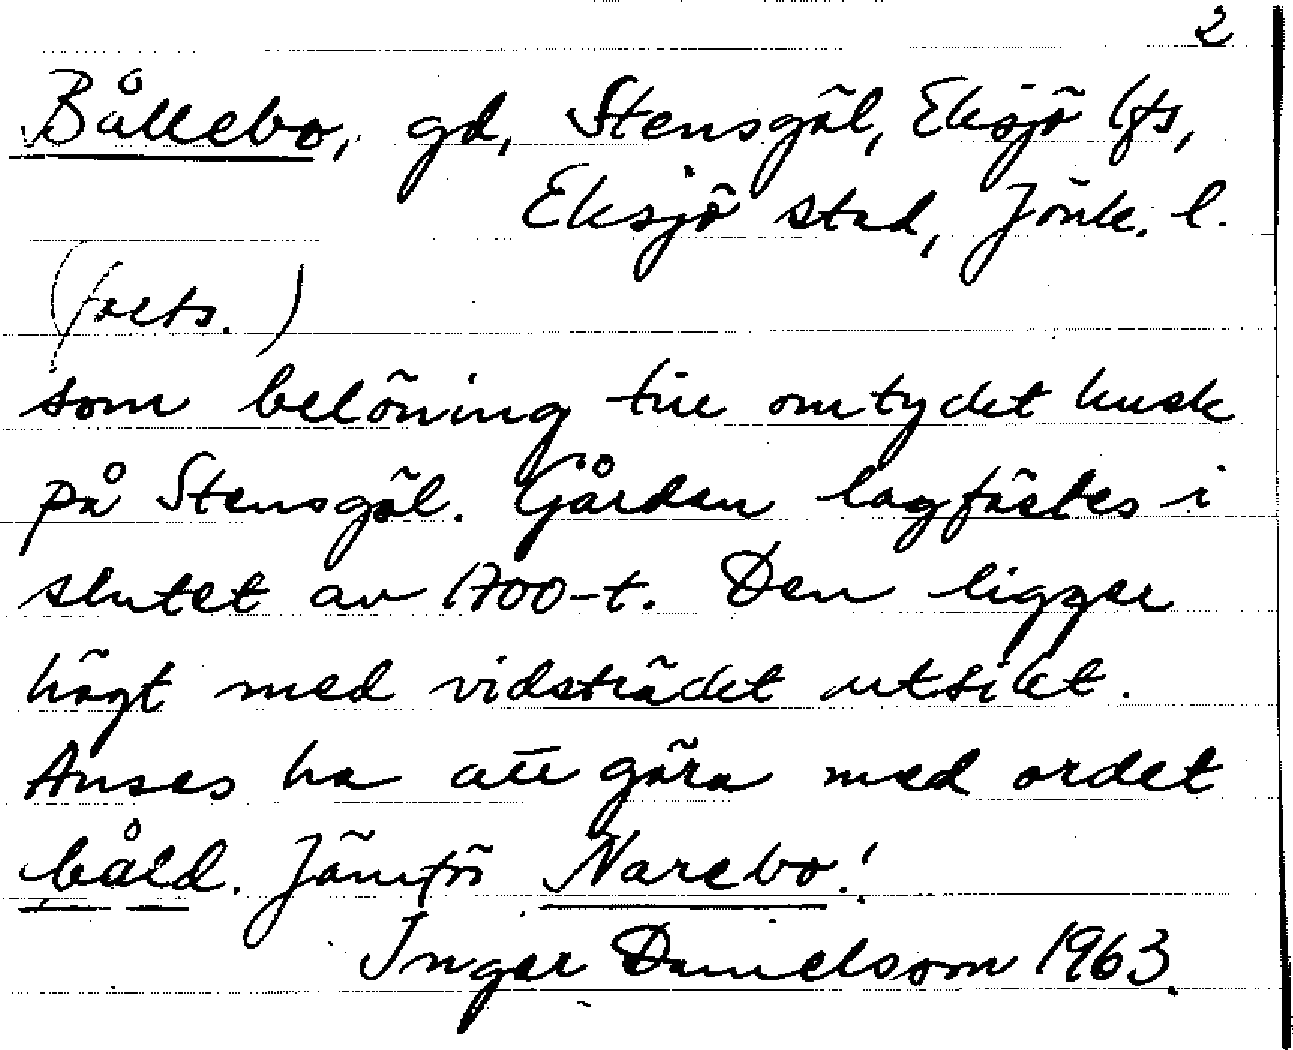 2
Bållebo, gd, Stensgöl, Eksjö lfs,
Eksjö stad, Jönk. l.
(forts.)
som belöning till omtyckt kusk
på Stensgöl. Gården lagfästes i
slutet av 1700-t. Den ligger
högt med vidsträckt utsikt.
Anses ha att göra med ordet
båld. Jämför Narebo!
Inger Danielsson 1963.